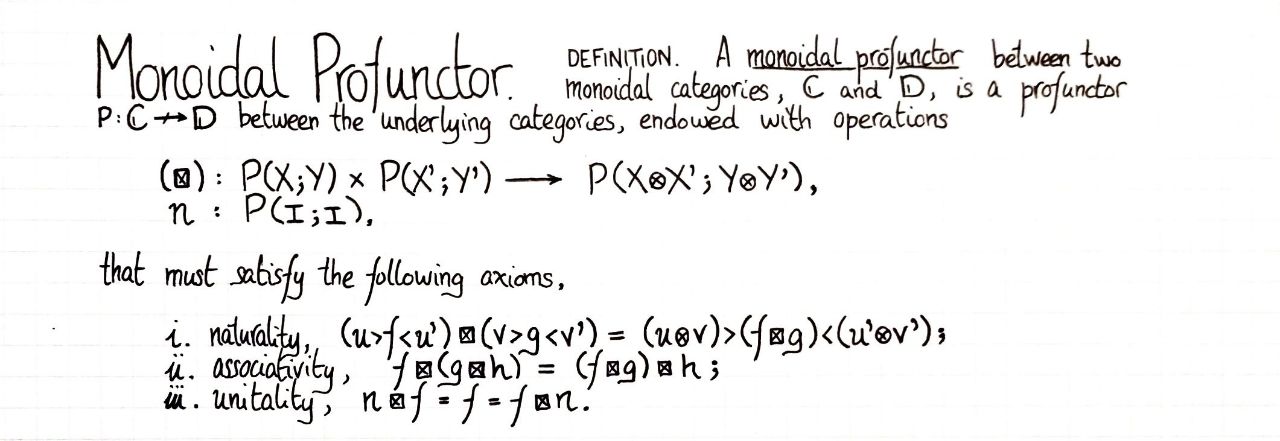 Monoidal Profunctor. DEFINITION. A monoidal profunctor between two
monoidal categories, ℂ and 𝔻, is a profunctor
P:ℂ⇸𝔻 between the underlying categories, endowed with operations
(⊠) : P(X;Y) × P(X';Y') ⟶ P(X⊗X';Y⊗Y'),
n : P(I;I),
that must satisfy the following axioms,
i. naturality, (u>f<u')⊠(v>g<v') = (u⊗v)>(f⊠g)<(u'⊗v');
ii. associativity, f⊠(g⊠h) = (f⊠g)⊠h;
iii. unitality, n⊠f = f = f⊠n.